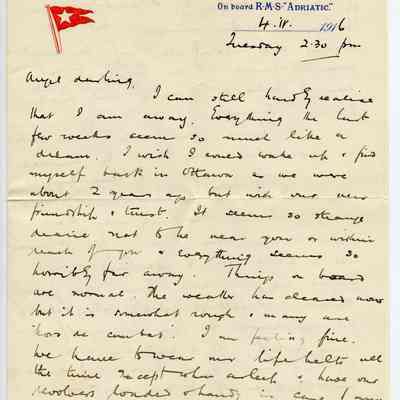 On board R·M·S· "ADRIATIC."
4.IV. 1916
Tuesday 2.30 pm
Angel darling,
I can still hardly realise
that I am away. Everything the last
few weeks seem so much like a
dream. I wish I could wake up & find
myself back in Ottawa as we were
about 2 years ago but with our new
friendship & trust. It seems so strange
not to be near you or within
reach of you & everything seems so
horribly far away. Things on board
are normal. The weather has cleared now
but it is somewhat rough & many are
'hors de combat'. I am feeling fine.
We have to wear our life belts all
the time except when asleep & have our
revolvers loaded & handy in case